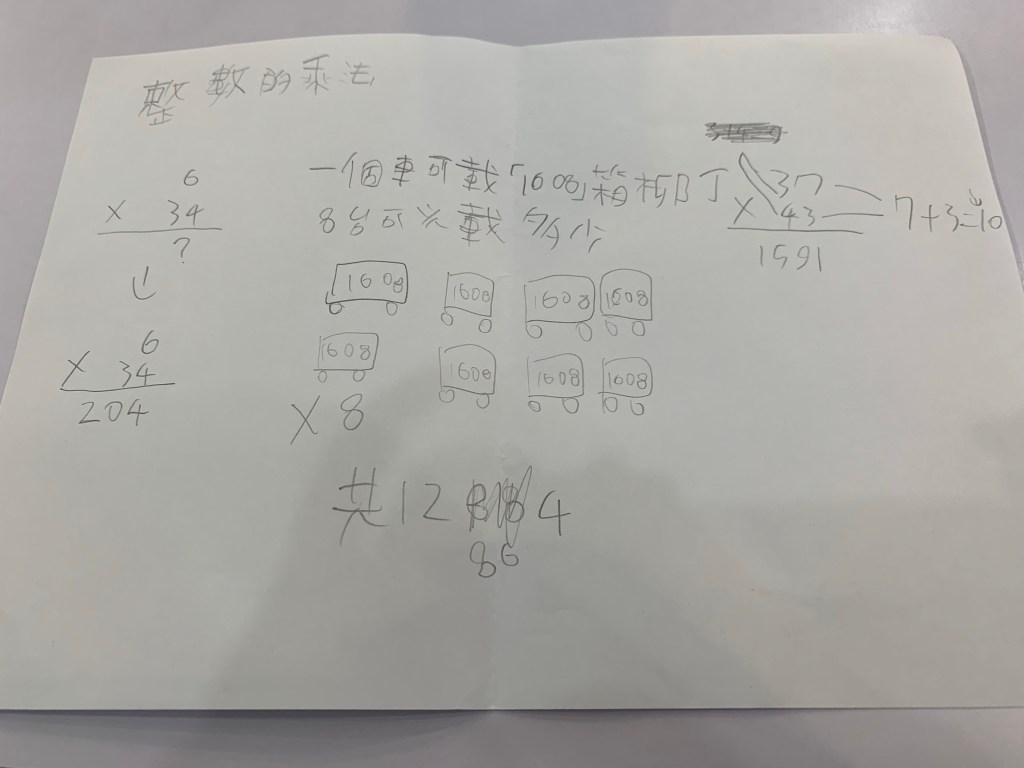 整數的乘法
6
× 34
?
↓
6
× 34
204
一個車可載「1608」箱柳丁
8台可以載多少
1608 1608 1608 1608
1608 1608 1608 1608
× 8
共12 4
86
37
× 43
1591
7+3=10